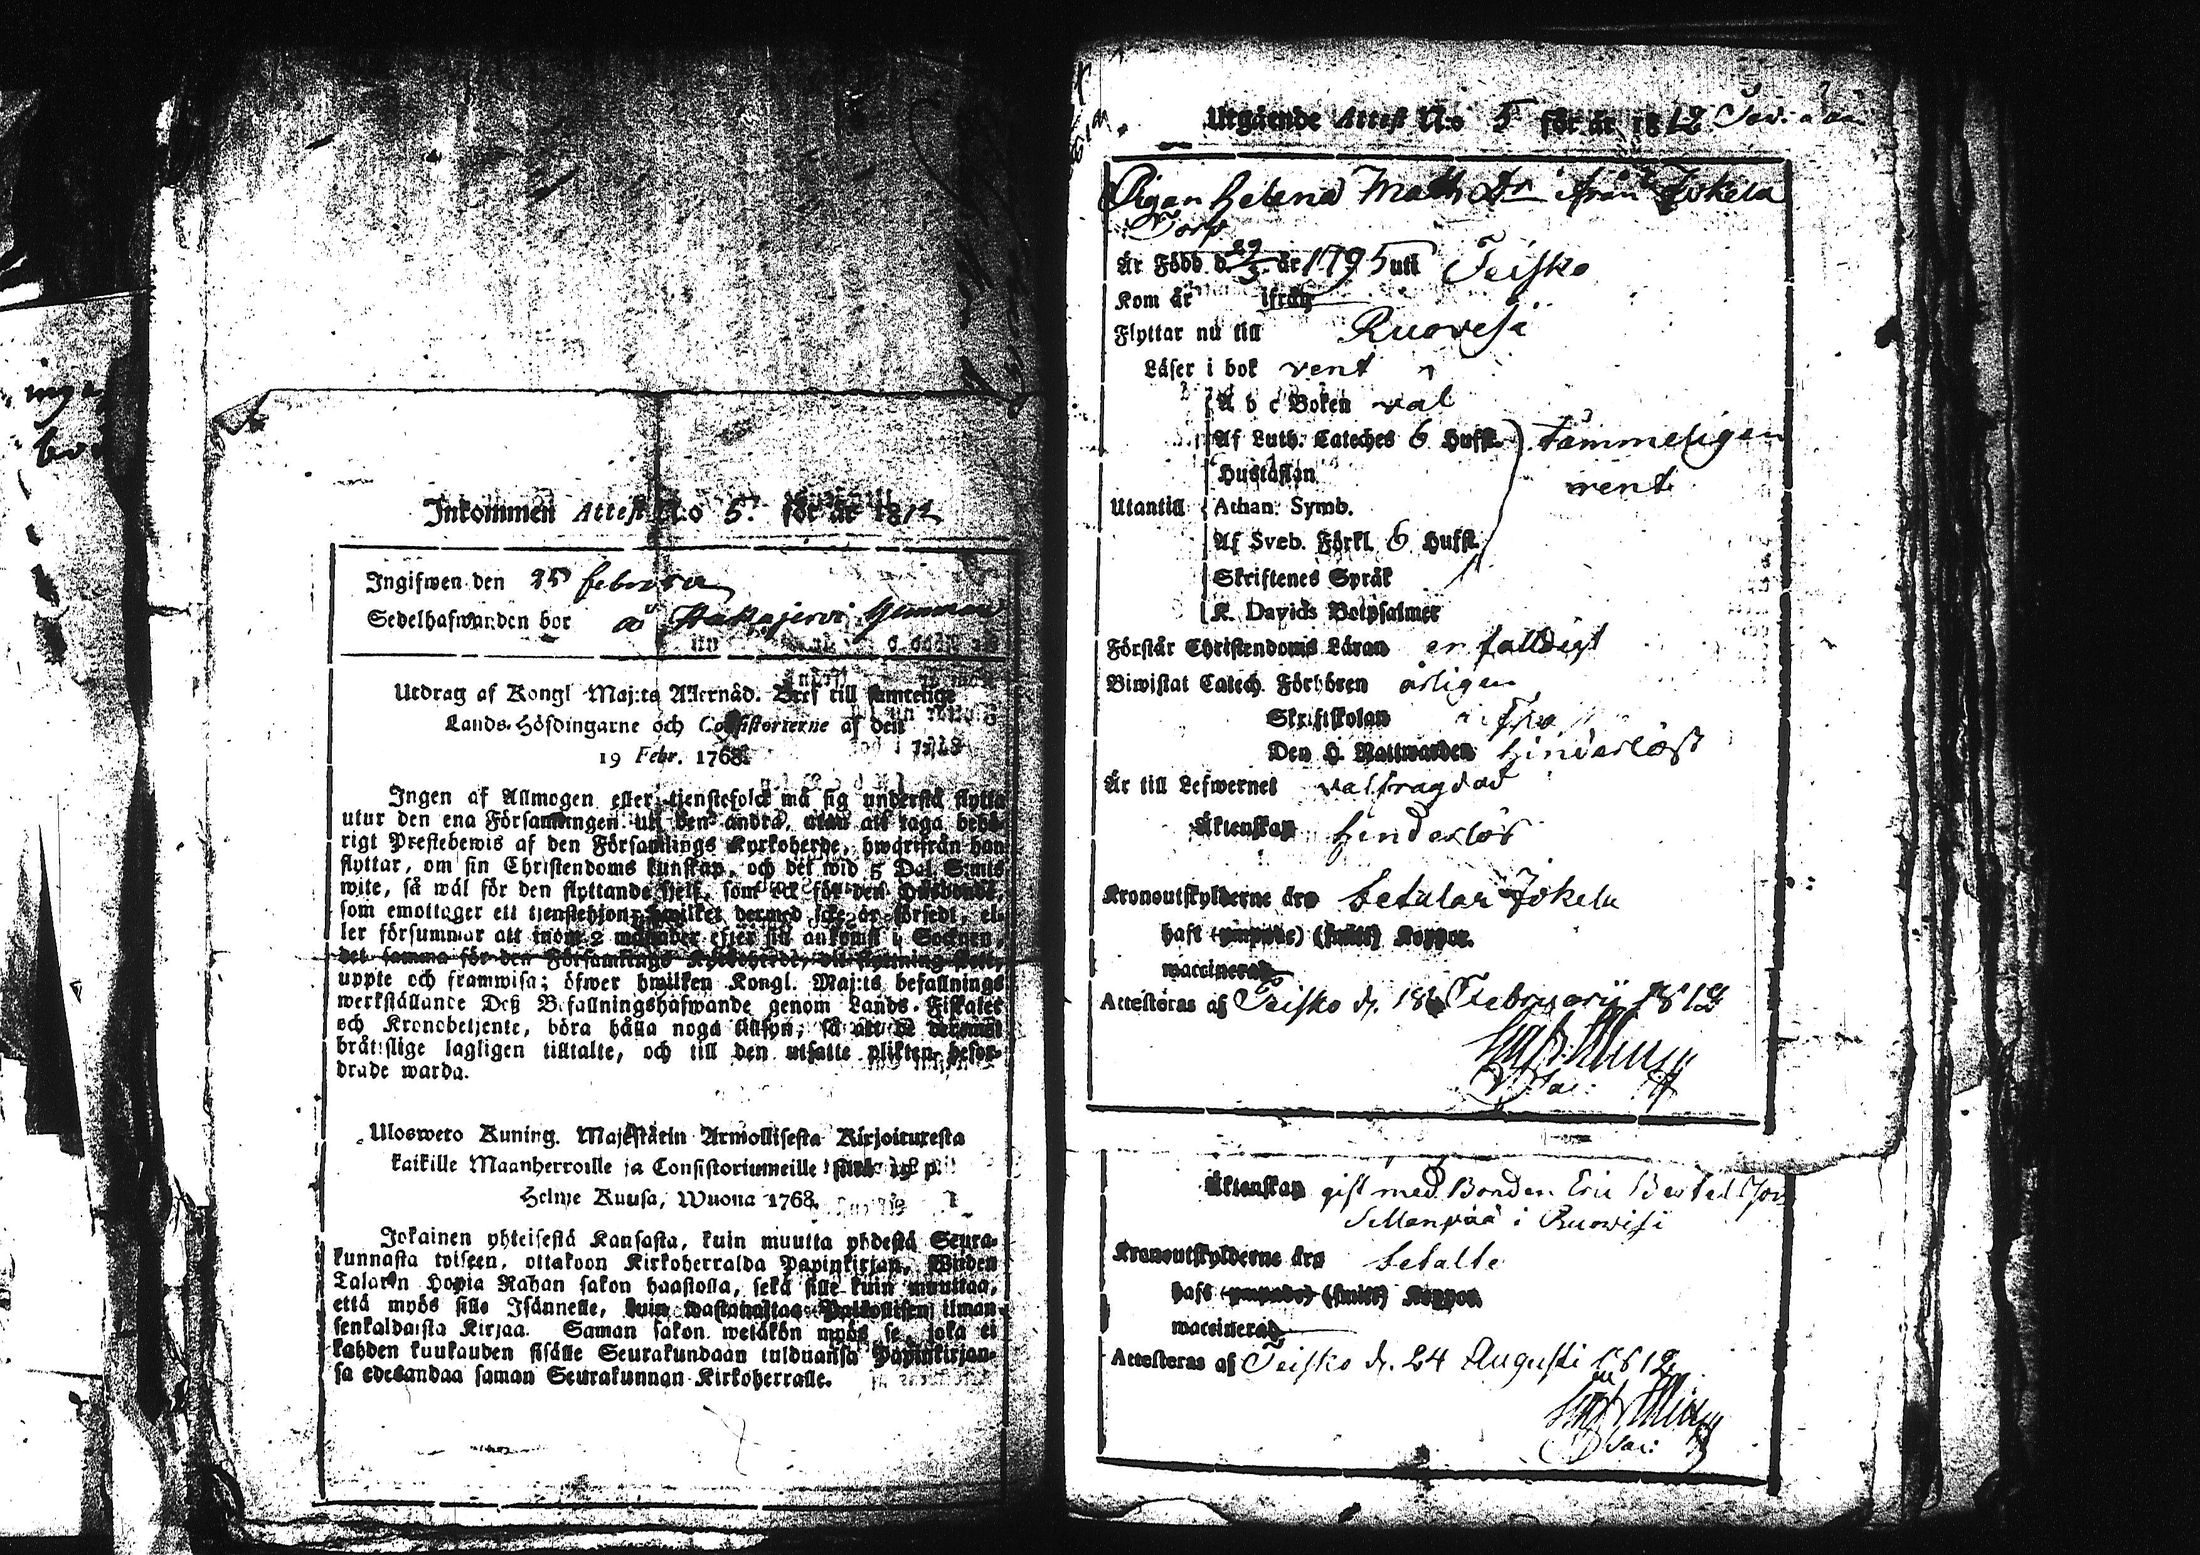 Inkommen Attest N:o 5. för år 1812
Ingifwen den 25 februari
Sedelhafwanden bor
Utdrag af Kongl Maj:ts Allernåd. Bref till samtelige
Lands-Höfdingarne och Consistorierne af den
19 Febr. 1768.
Ingen af Allmogen eller tjenstefolck må sig understå flytta
utur den ena Församlingen uti den andra, utan att taga behö-
rigt Prestebewis af den Församlings Kyrkoherde, hwarifrån han
flyttar, om sin Christendoms kunskap, och det wid 5 Dal. S:mts
wite, så wäl för den flyttande sjelf, som ock för den Husbonde,
som emottager ett tjenstehjon, hwilket dermed icke är försedt, el-
ler försummar att inom 2 månader efter sin ankomst i Socknen,
det samma för den Församlings Kyrkoherde, dit flyttning sker,
uppte och framwisa; öfwer hwilken Kongl. Maj:ts befallnings
werkställande Deß Befallningshafwande genom Lands-Fiskaler
och Kronobetjente, böra hålla noga tillsyn, så att de deremot
brätslige lagligen tilltalte, och till den utsatte plikten befor-
drade warda.
Ulosweto Kuning. Majestätin Armollisesta Kirjoituxesta
kaikille Maanherroille ja Consistoriumeille sinä 19 p.
Helme Kuusa, Wuona 1768.
Jokainen yhteisestä Kansasta, kuin muutta yhdestä Seura-
kunnasta toiseen, ottakoon Kirkoherralda Papinkirjan, Wiiden
Talarin Hopia Rahan sakon haastolla, sekä sille kuin muuttaa,
että myös sille Isännelle, kuin wastanottaa Palkollisen ilman
senkaldaista Kirjaa. Saman sakon wetäkön myös se, joka ei
kahden kuukauden sisälle Seurakundaan tulduansa Papinkirjan-
sa edesandaa saman Seurakunnan Kirkoherralle.
Utgående Attest N:o 5 för år 1812
Pigan Helena Matts Dr ifrån Jokela
Torp
År Född d. 29/3. år 1795 uti Teisko
Kom år ifrån
Flyttar nu till Ruovesi
Läser i bok rent
A b c Boken väl
Af Luth. Cateches 6 Hufst. tämmeligen
Hustaflan rent
Utantill Athan. Symb.
Af Sveb. Förkl. 6 Hufst.
Skriftenes Språk
K. Davids Botpsalmer
Förstår Christendoms Läran enfalldigt
Biwistat Catech. Förhören årligen
Skriftskolan
Den H. Nattwarden hinderlöst
Är till Lefwernet välfrägdad
Äktenskap hinderlös
Kronoutskylderne äro betalar Jokela
haft (ympade) (smitt) Koppor.
waccinerad
Attesteras af Teisko d. 18 Februarii 1812
Äktenskap gift med Bonden Eric Bertel
i Ruovesi
Kronoutskylderne äro betalte
haft (ympade) (smitt) Koppor
waccinerad
Attesteras af Teisko d. 24 Augusti 1812